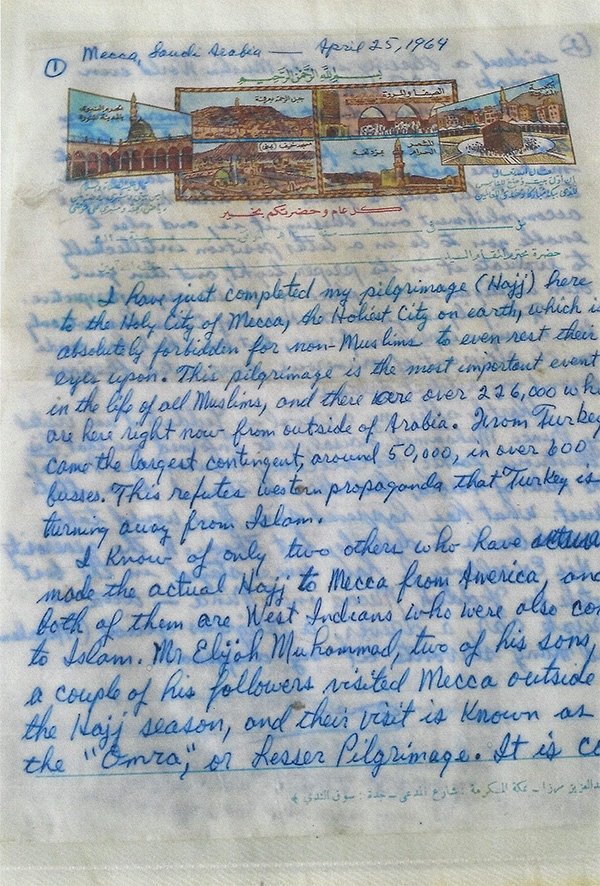 ① Mecca, Saudi Arabia — April 25, 1964
بسم الله الرحمن الرحيم
جبل الرحمة بعرفة
الصفا والمروة
مسجد خيف (منى)
المشعر الحرام
مزدلفة
كل عام وحضرتكم بخير
I have just completed my pilgrimage (Hajj) here
to the Holy City of Mecca, the Holiest City on earth, which is
absolutely forbidden for non-Muslims to even rest their
eyes upon. This pilgrimage is the most important event
in the life of all Muslims, and there were over 226,000 who
are here right now from outside of Arabia. From Turkey
came the largest contingent, around 50,000, in over 600
busses. This refutes western propaganda that Turkey is
turning away from Islam.
I know of only two others who have actua
made the actual Hajj to Mecca from America, and
both of them are West Indians who were also con
to Islam. Mr Elijah Muhammad, two of his sons,
a couple of his followers visited Mecca outside
the Hajj season, and their visit is known as
the "Omra," or Lesser Pilgrimage. It is co
مكة المكرمة : شارع المدعى - جدة : سوق الندى